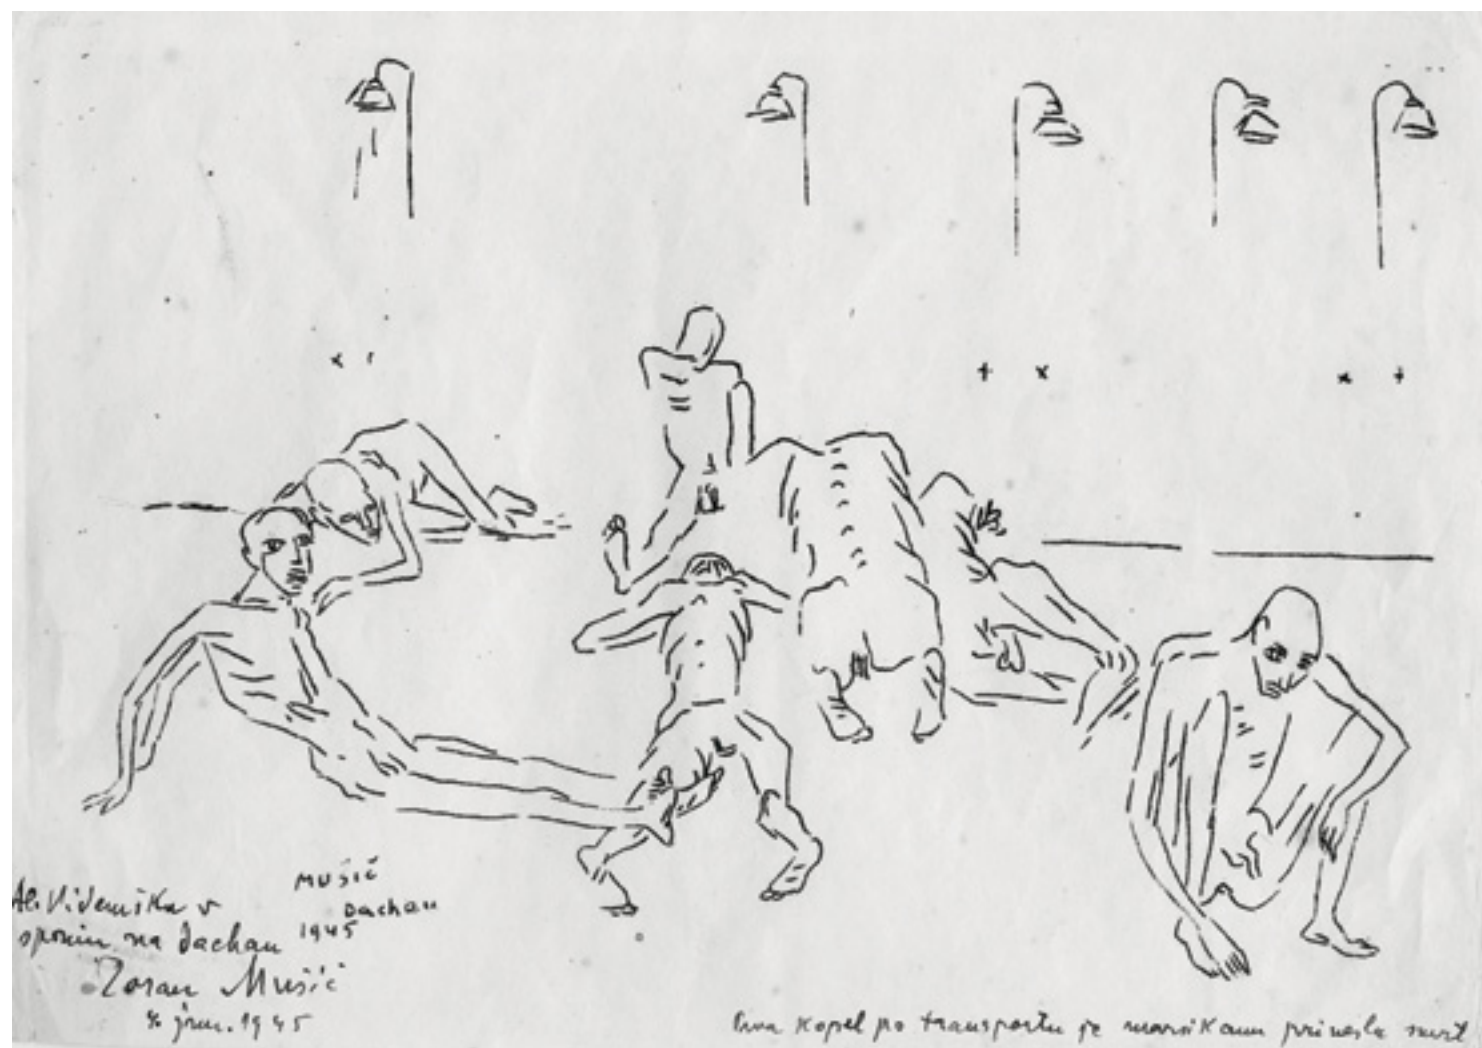 MUSIČ
Dachau
1945
v
spomin na Dachau
Zoran Mušič
jun. 1945
Prva kopel po transportu je marsikomu prinesla smrt